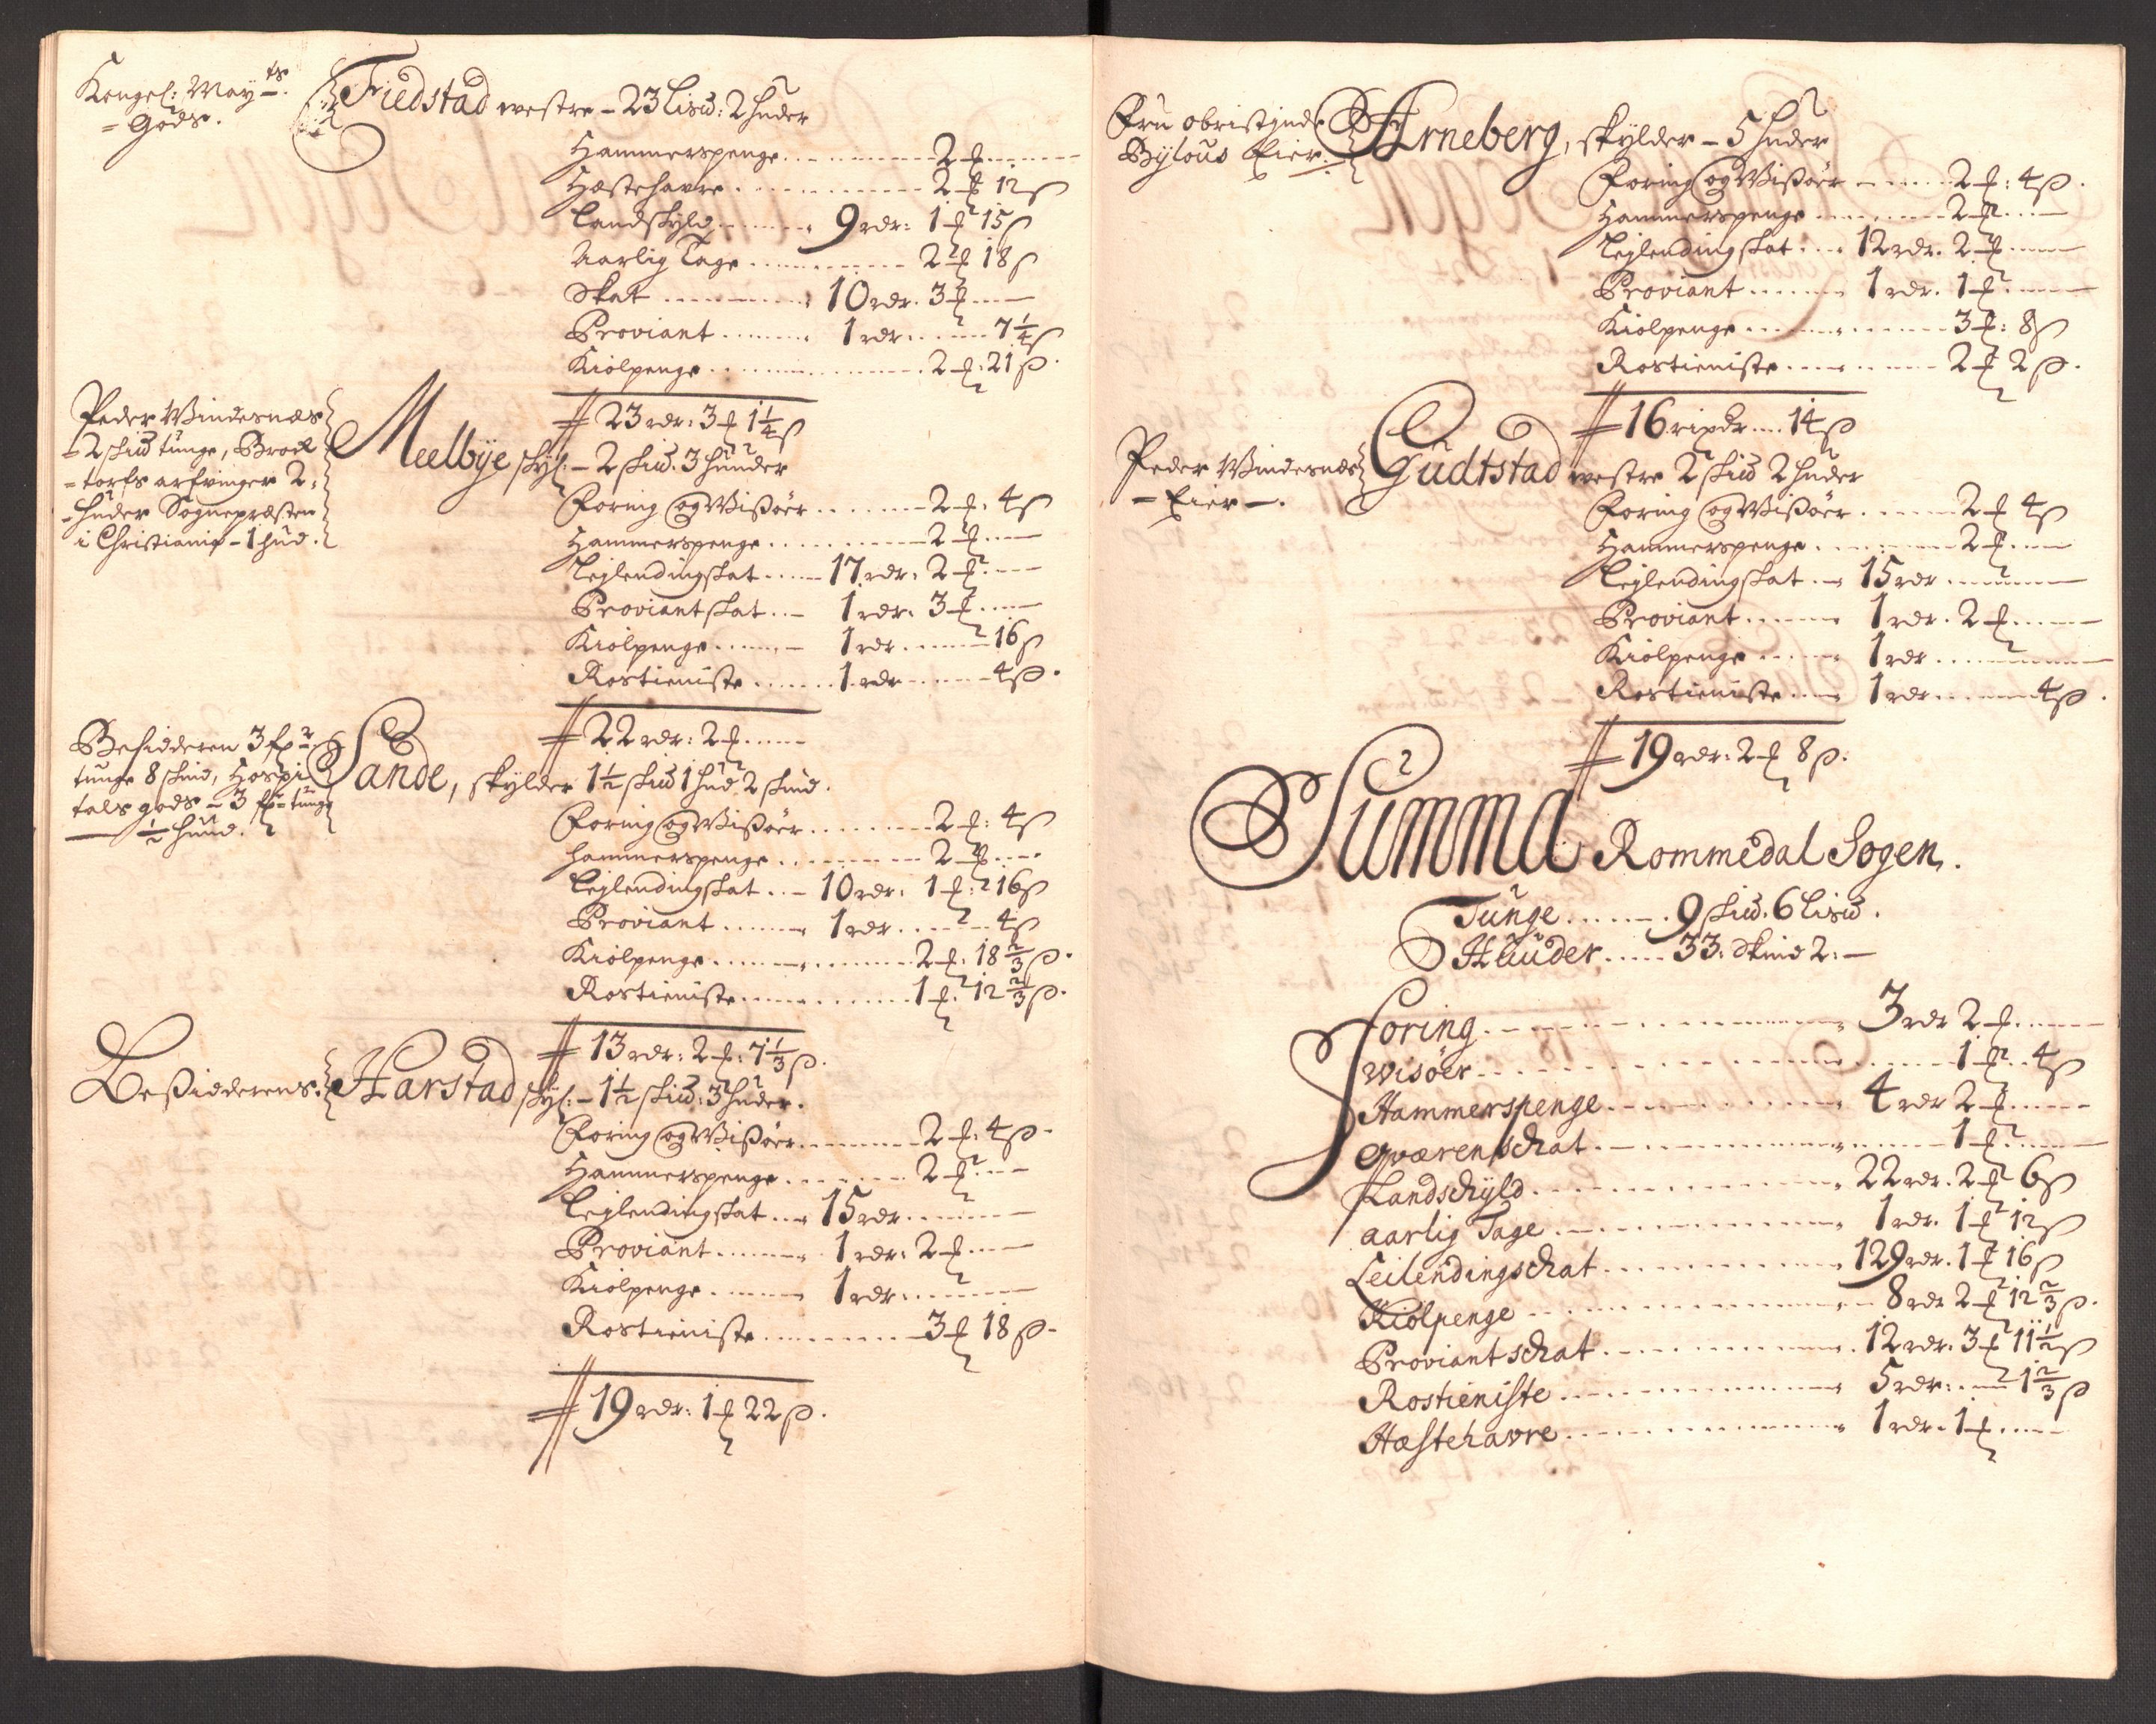 Kongel: May ts.
= Gods.
Fiedstad westre - 23 lis℔: 2 huder
Hammerspenge 2 ₰
Hæstehavre 2 ₰ 12 ß
Landskyld 9 rdr: 1 ₰ 15 ß
Aarlig Tage 2 ₰ 18 ß
Skat 10 rdr. 3 ₰
Proviant 1 rdr 7 1/4 ß
Kiölpenge 2 ₰: 21 ß
23 rdr: 3 ₰ 1 1/4 ß
Peder Windesnæs
- 2 skl℔ tunge, Brock
= torfs arfvinger 2
= huder Sognepræsten
i Christiania - 1 hud.
Meelbÿe skÿl: - 2 skl℔. 3 huuder
Foring og Wißöer 2 ₰: 4 ß
Hammerspenge 2 ₰
Lejlendingskat 17 rdr: 2 ₰
Proviantskat 1 rdr: 3 ₰
Kiölpenge 1 rdr 16 ß
Rostieniste 1 rdr 4 ß
22 rdr: 2 ₰
Besidderen 3 fr
tunge 8 skind, Hospi
tals gods - 3 fr tunge
1/2 hund.
Sande, skylder 1 1/2 skl℔ 1 hud 2 skind.
Foring og Wißöer 2 ₰: 4 ß
Hammerspenge 2 ₰
Lejlendingskat 10 rdr: 1 ₰: 16 ß
Proviant 1 rdr 4 ß
Kiölpenge 2 ₰: 18 2/3 ß
Rostieniste 1 ₰: 12 2/3 ß
13 rdr: 2 ₰: 7 1/3 ß.
Beßidderens.
Harstad skÿl: - 1 1/2 skl℔: 3 huder.
Foring og Wißöer 2 ₰: 4 ß
Hammerspenge 2 ₰
Lejlendingskat 15 rdr
Proviant 1 rdr: 2 ₰
Kiölpenge 1 rdr
Rostieniste 3 ₰ 18 ß
19 rdr: 1 ₰ 22 ß.
Fru obristinde
Bÿlous Eier
Arneberg, skylder - 5 huder
Foring og Wißöer 2 ₰: 4 ß.
Hammerspenge 2 ₰
Lejlendingskat 12 rdr. 2 ₰
Proviant 1 rdr. 1 ₰
Kiölpenge 3 ₰: 8 ß
Rostieniste 2 ₰ 2 ß.
16 rixdr 14 ß
Peder Windesnæs
= Eier -.
Gudtstad westre 2 skl℔ 2 huder
Foring og Wißöer 2 ₰ 4 ß
Hammerspenge 2 ₰
Lejlendingskat 15 rdr
Proviant 1 rdr. 2 ₰
Kiölpenge 1 rdr
Rostieniste 1 rdr 4 ß.
19 rdr: 2 ₰ 8 ß.
Summa Rommedal Sogen.
Tunge 9 skl℔. 6 lis℔.
Huuder 33: Skind 2: -
Foring 3 rdr 2 ₰
wisöer 1 ₰ 4 ß
Hammerspenge 4 rdr 2 ₰
Qværenschat 1 ₰
Landschÿld 22 rdr. 2 ₰ 6 ß
aarlig Tage 1 rdr. 1 ₰ 12 ß
Leilendingschat 129 rdr. 1 ₰ 16 ß
Kiölpenge 8 rdr 2 ₰ 12 2/3 ß.
Proviantschat 12 rdr. 3 ₰ 11 1/2 ß
Rostieniste 5 rdr: 1 2/3 ß
Hæstehavre 1 rdr. 1 ₰